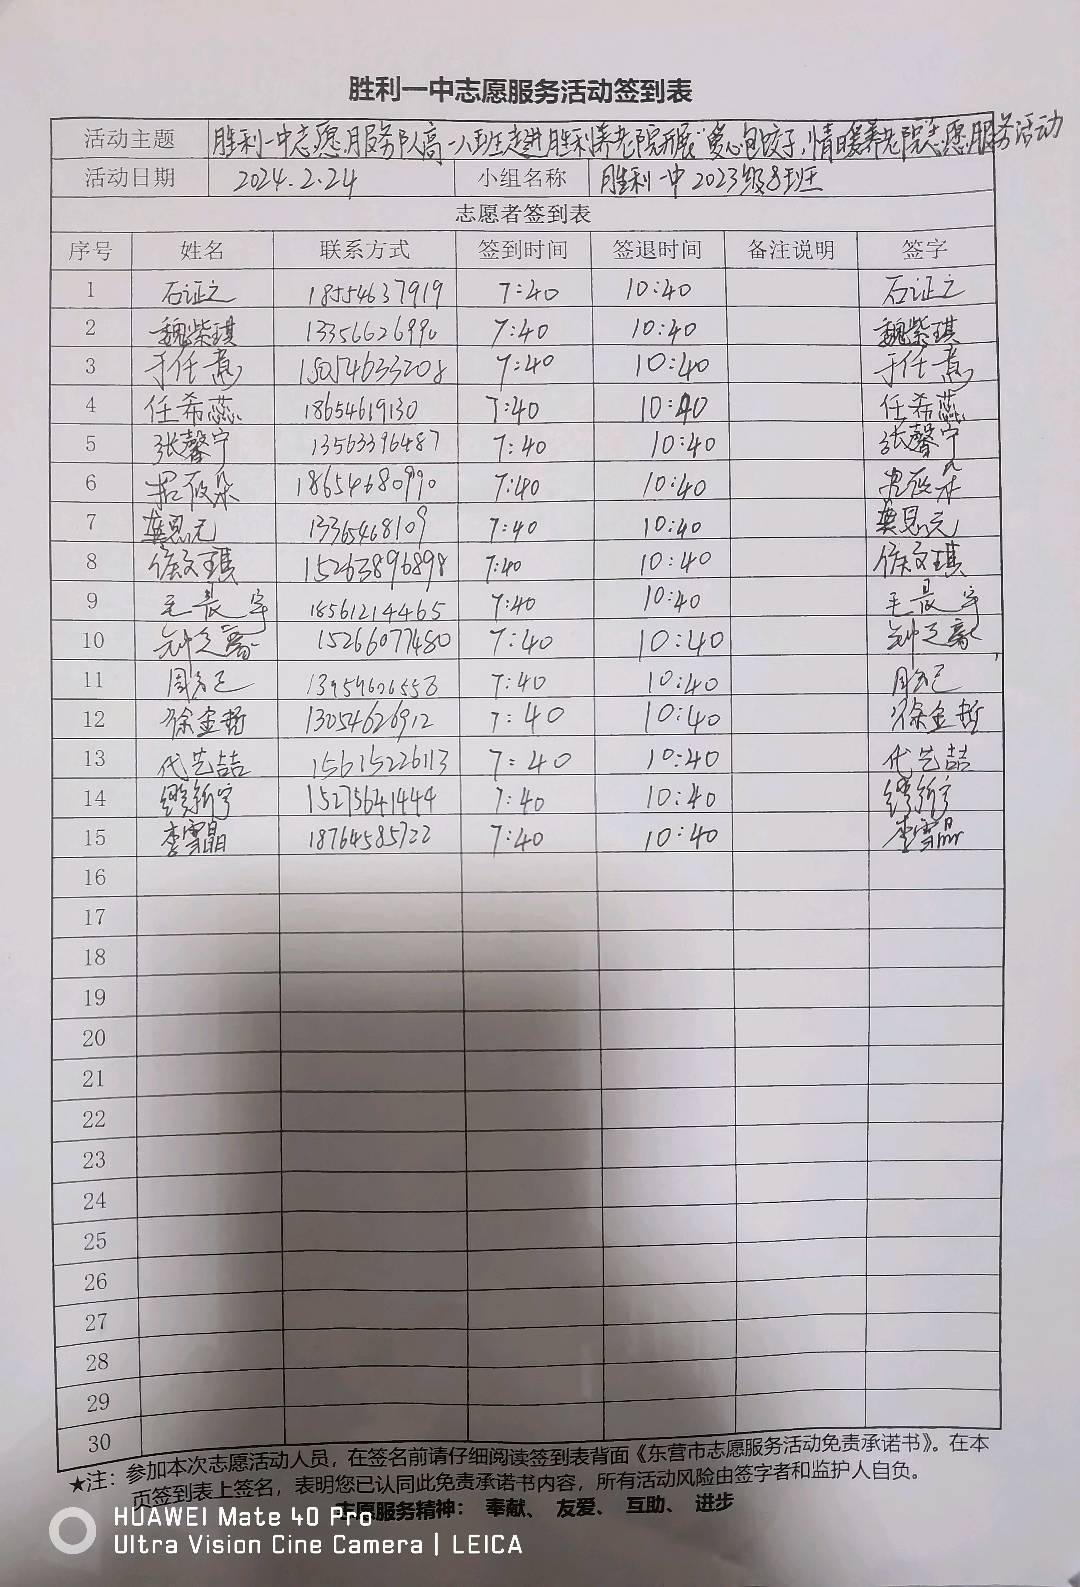 胜利一中志愿服务活动签到表
活动主题 胜利一中志愿服务队高一八班走进胜利养老院开展“爱心包饺子,情暖养老院”志愿服务活动
活动日期 2024.2.24 小组名称 胜利一中2023级8班
志愿者签到表
序号 姓名 联系方式 签到时间 签退时间 备注说明 签字
1 石证之 18554637919 7:40 10:40 石证之
2 魏紫琪 13356626990 7:40 10:40 魏紫琪
3 于任熹 15054633208 7:40 10:40 于任熹
4 任希蕊 18654619130 7:40 10:40 任希蕊
5 张馨宁 13563396487 7:40 10:40 张馨宁
6 18654680990 7:40 10:40
7 龚思元 13365468109 7:40 10:40 龚思元
8 徐文琪 15263896898 7:40 10:40 徐文琪
9 王晨宇 18561214465 7:40 10:40 王晨宇
10 15266077480 7:40 10:40
11 7:40 10:40
12 徐金哲 13054626912 7:40 10:40 徐金哲
13 代艺喆 15615226113 7:40 10:40 代艺喆
14 缪新宇 15275641444 7:40 10:40 缪新宇
15 李雪晶 18764585722 7:40 10:40 李雪晶
16
17
18
19
20
21
22
23
24
25
26
27
28
29
30
★注：参加本次志愿活动人员，在签名前请仔细阅读签到表背面《东营市志愿服务活动免责承诺书》。在本
页签到表上签名，表明您已认同此免责承诺书内容，所有活动风险由签字者和监护人自负。
志愿服务精神： 奉献、 友爱、 互助、 进步
HUAWEI Mate 40 Pro
Ultra Vision Cine Camera | LEICA